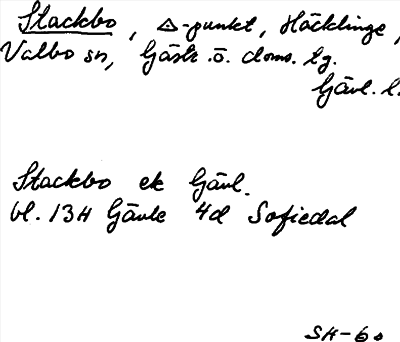 Stackbo, △-punkt, Häcklinge,
Valbo sn, Gästr. ö. doms. tg.
Gävl. l.
Stackbo ek Gävl.
bl. 13H Gävle 4d Sofiedal
SH-60